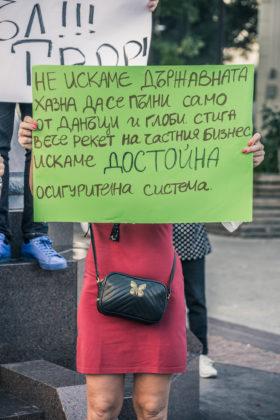 Л!!!
ТРОР!
НЕ ИСКАМЕ ДЪРЖАВНАТА
ХАЗНА ДА СЕ ПЪЛНИ САМО
ОТ ДАНЪЦИ И ГЛОБИ. СТИГА
ВЕЧЕ РЕКЕТ НА ЧАСТНИЯ БИЗНЕС
ИСКАМЕ ДОСТОЙНА
ОСИГУРИТЕЛНА СИСТЕМА.